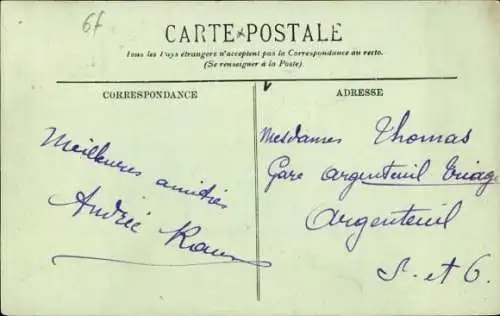 6f
CARTE POSTALE
Tous les Pays étrangers n'acceptent pas la Correspondance au recto.
(Se renseigner à la Poste).
CORRESPONDANCE
Meilleures amitiés
Andrée
ADRESSE
Mesdames Thomas
Gare Argenteuil Triage
Argenteuil
S. et O.